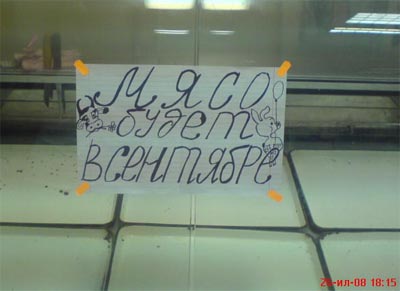 Мясо
будет
в сентябре
28-ил-08 18:15